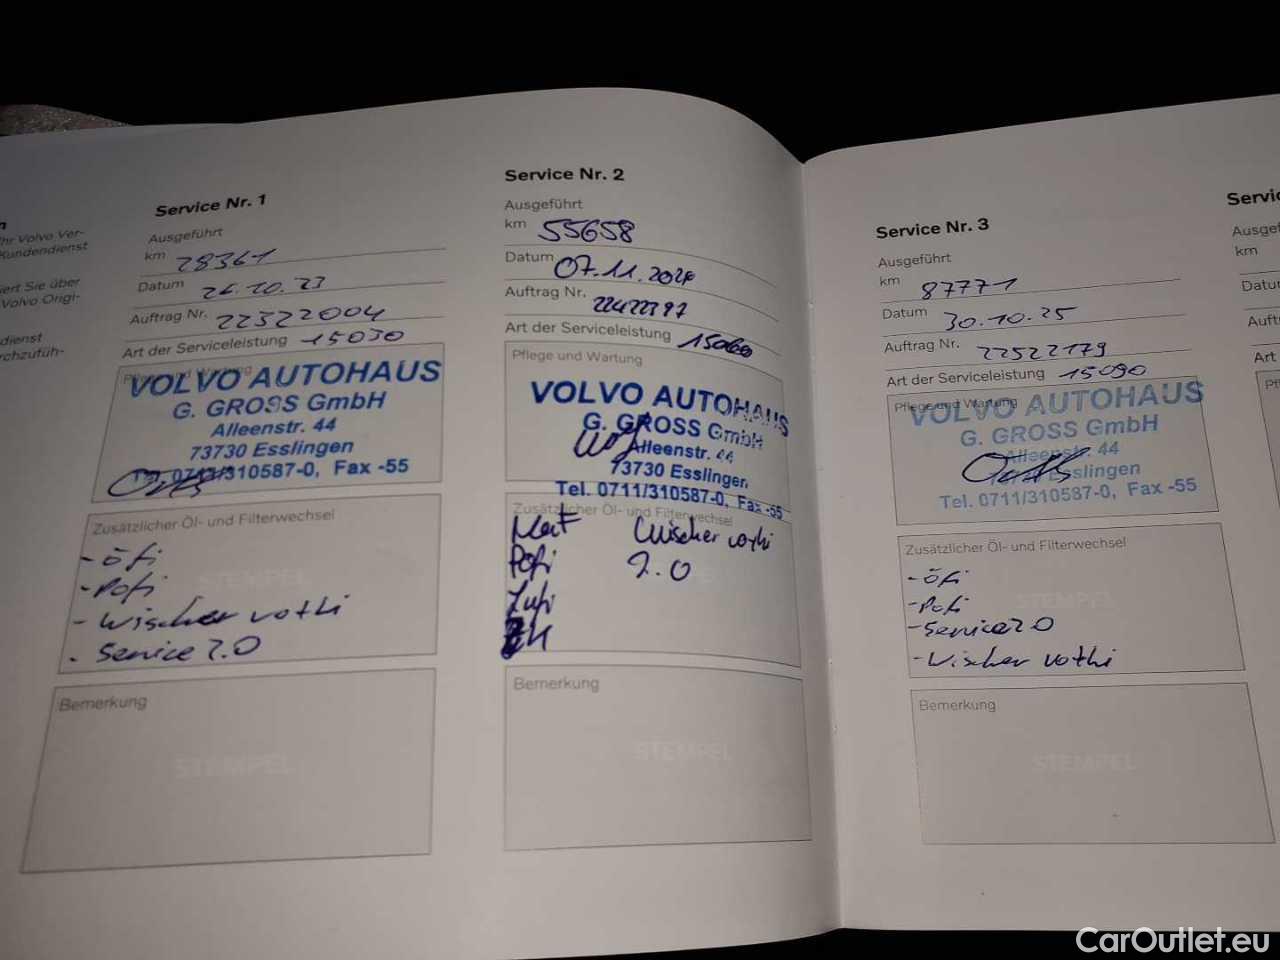 n
Ihr Volvo Ver-
Kundendienst
iert Sie über
Volvo Origi-
dienst
rchzufüh-
Service Nr. 1
Ausgeführt
km 28361
Datum 26.10.23
Auftrag Nr. 22322004
Art der Serviceleistung 15030
Pflege und Wartung
VOLVO AUTOHAUS
G. GROSS GmbH
Alleenstr. 44
73730 Esslingen
Tel. 0711/310587-0, Fax -55
Zusätzlicher Öl- und Filterwechsel
- Öfi
- Pofi
- Wischer vothi
- Service 2.0
STEMPEL
Bemerkung
STEMPEL
Service Nr. 2
Ausgeführt
km 55658
Datum 07.11.2024
Auftrag Nr. 22422397
Art der Serviceleistung 15060
Pflege und Wartung
VOLVO AUTOHAUS
G. GROSS GmbH
Alleenstr. 44
73730 Esslingen
Tel. 0711/310587-0, Fax -55
Zusätzlicher Öl- und Filterwechsel
Wischer vothi
Pofi 2.0
Lufi
STEMPEL
Bemerkung
STEMPEL
Service Nr. 3
Ausgeführt
km 87771
Datum 30.10.25
Auftrag Nr. 22522179
Art der Serviceleistung 15090
Pflege und Wartung
VOLVO AUTOHAUS
G. GROSS GmbH
Alleenstr. 44
Esslingen
Tel. 0711/310587-0, Fax -55
Zusätzlicher Öl- und Filterwechsel
- Öfi
- Pofi
- Service 2.0
- Wischer vothi
STEMPEL
Bemerkung
STEMPEL
Servic
Ausge
km
Datu
Auft
Art
Pf
CarOutlet.eu